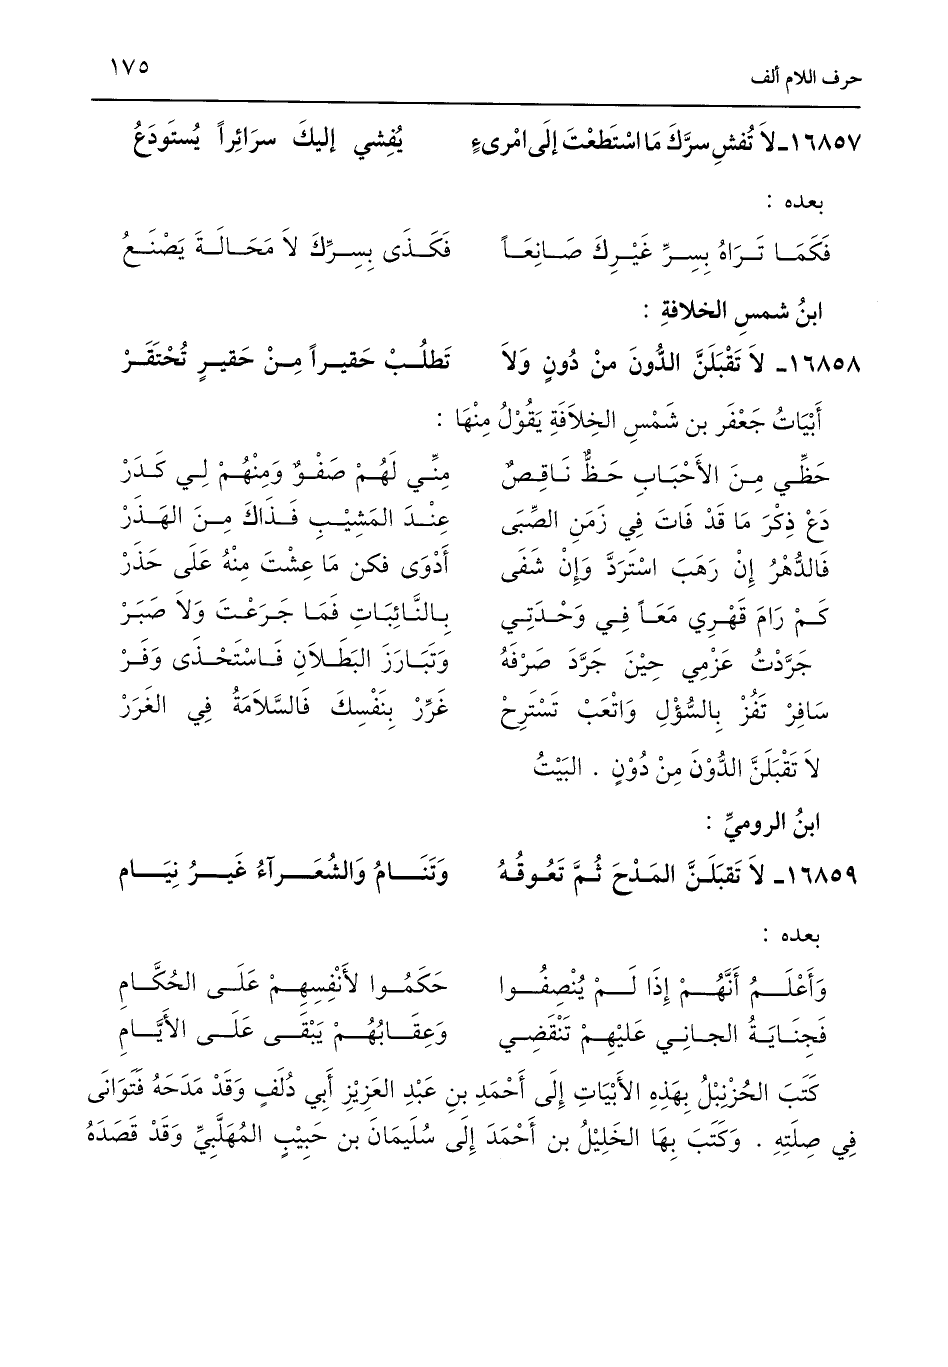 حرف اللام ألف ١٧٥
١٦٨٥٧ـ لاَ تُفشِ سرَّكَ مَا اسْتَطَعْتَ إلَى امْرىءٍ يُفِشي إليكَ سرَائِراً يُستَودَعُ
بعده :
فَكَمَـا تَـرَاهُ بِسِـرِّ غَيْـرِكَ صَـانِعَـاً فَكَـذَى بِسِـرِّكَ لاَ مَحَـالَـةَ يَصْنَـعُ
ابنُ شمسِ الخلافةِ :
١٦٨٥٨ـ لاَ تَقْبَلَنَّ الدُّونَ منْ دُونٍ وَلاَ تَطلُـبْ حَقيـراً مِـنْ حَقيـرٍ تُحْتَقَـرْ
أَبْيَاتُ جَعْفَر بن شَمْسِ الخِلاَفَةِ يَقُوْلُ مِنْهَا :
حَظِّـي مِـنَ الأَحْبَـابِ حَـظٌّ نَـاقِـصٌ مِنِّـي لَهُـمْ صَفْـوٌ وَمِنْهُـمْ لِـي كَـدَرْ
دَعْ ذِكْرَ مَا قَدْ فَاتَ فِي زَمَنِ الصِّبَى عِنْـدَ المَشِيْـبِ فَـذَاكَ مِـنَ الهَـذَرْ
فَالدُّهْرُ إِنْ رَهَبَ اسْتَرَدَّ وَإِنْ شَفَى أَدْوَى فكن مَا عِشْتَ مِنْهُ عَلَى حَذَرْ
كَـمْ رَامَ قَهْـرِي مَعَـاً فِـي وَحْـدَتِـي بِـالنَّـائِبَـاتِ فَمَـا جَـزَعْـتَ وَلاَ صَبَـرْ
جَرَّدْتُ عَزْمِي حِيْنَ جَرَّدَ صَرْفَهُ وَتَبَـارَزَ البَطَـلاَنِ فَـاسْتَخْـذَى وَفَـرْ
سَافِرْ تَفُزْ بِالسُّؤْلِ وَاتْعَبْ تَسْتَرِحْ غَرِّرْ بِنَفْسِكَ فَالسَّلاَمَةُ فِي الغَرَرْ
لاَ تَقْبَلَنَّ الدُّوْنَ مِنْ دُوْنٍ . البَيْتُ
ابنُ الروميِّ :
١٦٨٥٩ـ لاَ تَقبَلَـنَّ المَـدْحَ ثُـمَّ تَعُـوقُـهُ وَتَنَـامُ وَالشُّعَـرآءُ غَيـرُ نِيَـام
بعده :
وَأَعْلَـمُ أَنَّهُـمْ إِذَا لَـمْ يُنْصِفُـوا حَكَمُـوا لأَنْفِسِهِـمْ عَلَـى الحُكَّـامِ
فَجِنَـايَـةُ الجـانِـي عَلَيْهِـمْ تَنْقَضِـي وَعِقَـابُهُـمْ يَبْقَـى عَلَـى الأَيَّـامِ
كَتَبَ الحُزْنبُلُ بِهَذِهِ الأَبْيَاتِ إِلَى أَحْمَدِ بنِ عَبْدِ العَزِيْزِ أَبِي دُلَفٍ وَقَدْ مَدَحَهُ فَتَوَانَى
فِي صِلَتِهِ . وَكَتَبَ بِهَا الخَلِيْلُ بن أَحْمَدَ إِلَى سُلَيمَانَ بن حَبِيْبٍ المُهَلَّبِيِّ وَقَدْ قَصَدَهُ